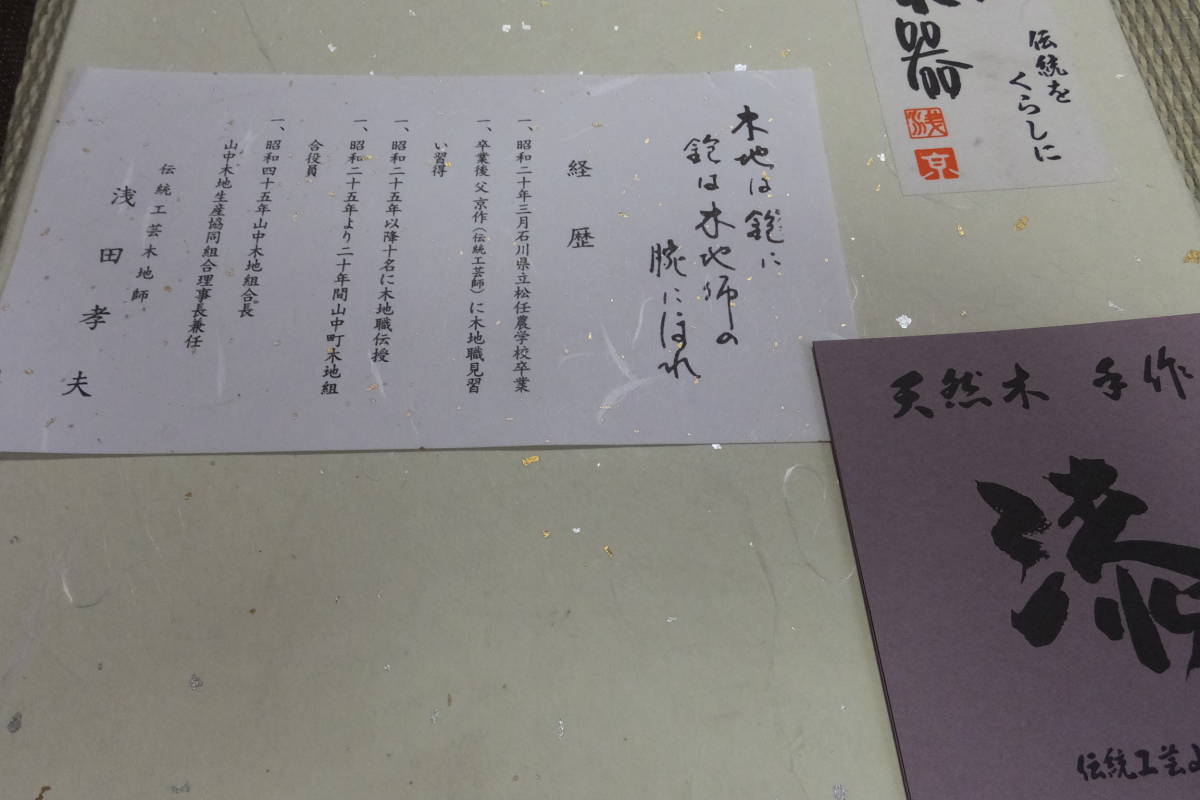 器
伝統を
くらしに
浅
京
木地は鉋に
鉋は木地師の
腕にほれ
経歴
一、昭和二十年三月石川県立松任農学校卒業
一、卒業後父京作(伝統工芸師)に木地職見習
い習得
一、昭和二十五年以降十名に木地職伝授
一、昭和二十五年より二十年間山中町木地組
合役員
一、昭和四十五年山中木地組合長
山中木地生産協同組合理事長兼任
伝統工芸木地師
浅田孝夫
天然木 手作
漆
伝統工芸